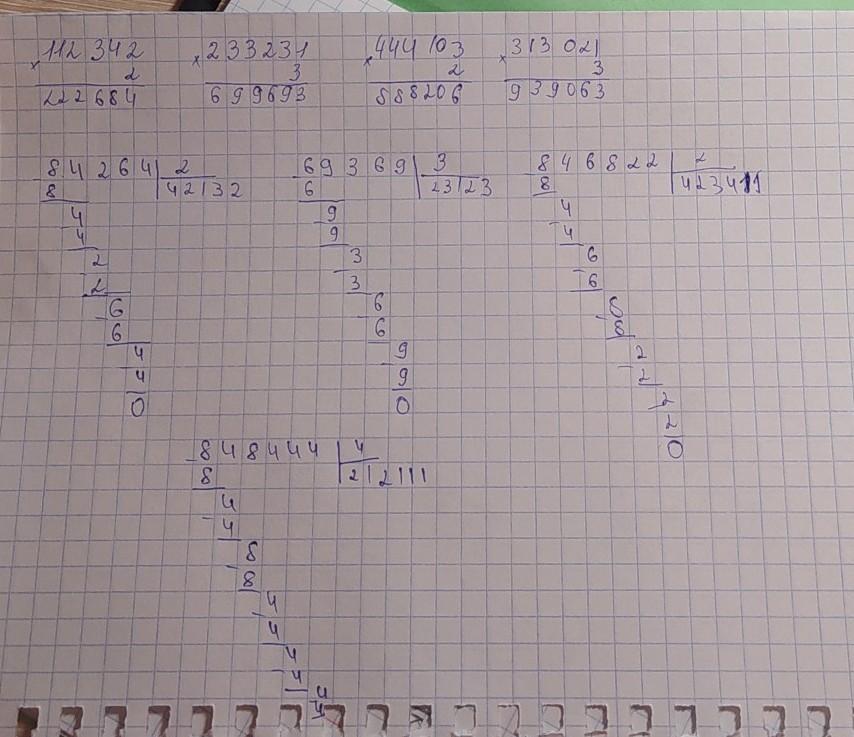 ×112 342 ×233231 ×444 103 ×313 021
2 3 2 3
222684 699693 888206 939063
84264 | 2 69369 | 3 846822 | 2
8 42132 6 23123 8 423411
4 9 4
4 9 4
2 3 6
2 3 6
6 6 8
6 6 8
4 9 2
4 9 2
0 0 2
2
0
848444 | 4
8 212111
4
4
8
8
4
4
4
4
4
4